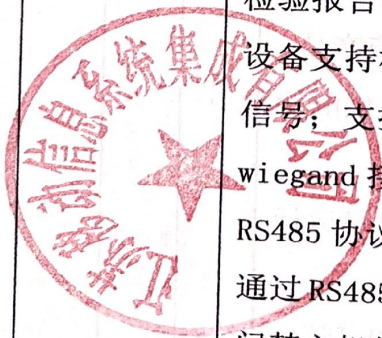 检验报告
设备支持
信号；支
wiegand
RS485 协议
通过 RS485
江苏移动信息系统集成有限公司